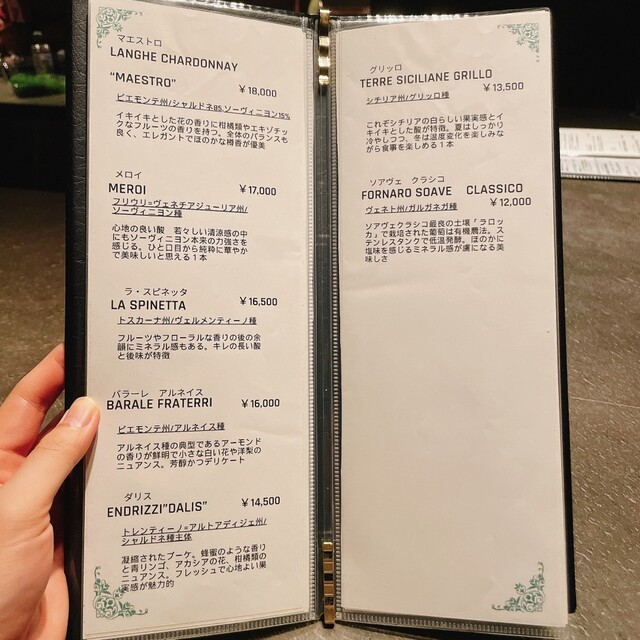 マエストロ
LANGHE CHARDONNAY
“MAESTRO”
￥18,000
ピエモンテ州/シャルドネ85.ソーヴィニヨン15%
イキイキとした花の香りに柑橘類やエキゾチッ
クなフルーツの香りを持つ。全体のバランスも
良く、エレガントでほのかな樽香が優美
メロイ
MEROI ￥17,000
フリウリ=ヴェネチアジューリア州/
ソーヴィニヨン種
心地の良い酸 若々しい清涼感の中
にもソーヴィニヨン本来の力強さを
感じる。ひと口目から純粋に華やか
で美味しいと思える1本
ラ・スピネッタ
LA SPINETTA ￥16,500
トスカーナ州/ヴェルメンティーノ種
フルーツやフローラルな香りの後の余
韻にミネラル感もある。キレの長い酸
と後味が特徴
バラーレ アルネイス
BARALE FRATERRI ￥16,000
ピエモンテ州/アルネイス種
アルネイス種の典型であるアーモンド
の香りが鮮明で小さな白い花や洋梨の
ニュアンス。芳醇かつデリケート
ダリス
ENDRIZZI”DALIS” ￥14,500
トレンティーノ=アルトアディジェ州/
シャルドネ種主体
凝縮されたブーケ。蜂蜜のような香り
と青リンゴ、アカシアの花、柑橘類の
ニュアンス。フレッシュで心地よい果
実感が魅力的
グリッロ
TERRE SICILIANE GRILLO
￥13,500
シチリア州/グリッロ種
これぞシチリアの白らしい果実感とイ
キイキとした酸が特徴。夏はしっかり
冷やしつつ、冬は温度変化を楽しみな
がら食事を楽しめる1本
ソアヴェ クラシコ
FORNARO SOAVE CLASSICO
￥12,000
ヴェネト州/ガルガネガ種
ソアヴェクラシコ最良の土壌「ラロッ
カ」で栽培された葡萄は有機農法。ス
テンレスタンクで低温発酵。ほのかに
塩味を感じるミネラル感が虜になる美
味しさ